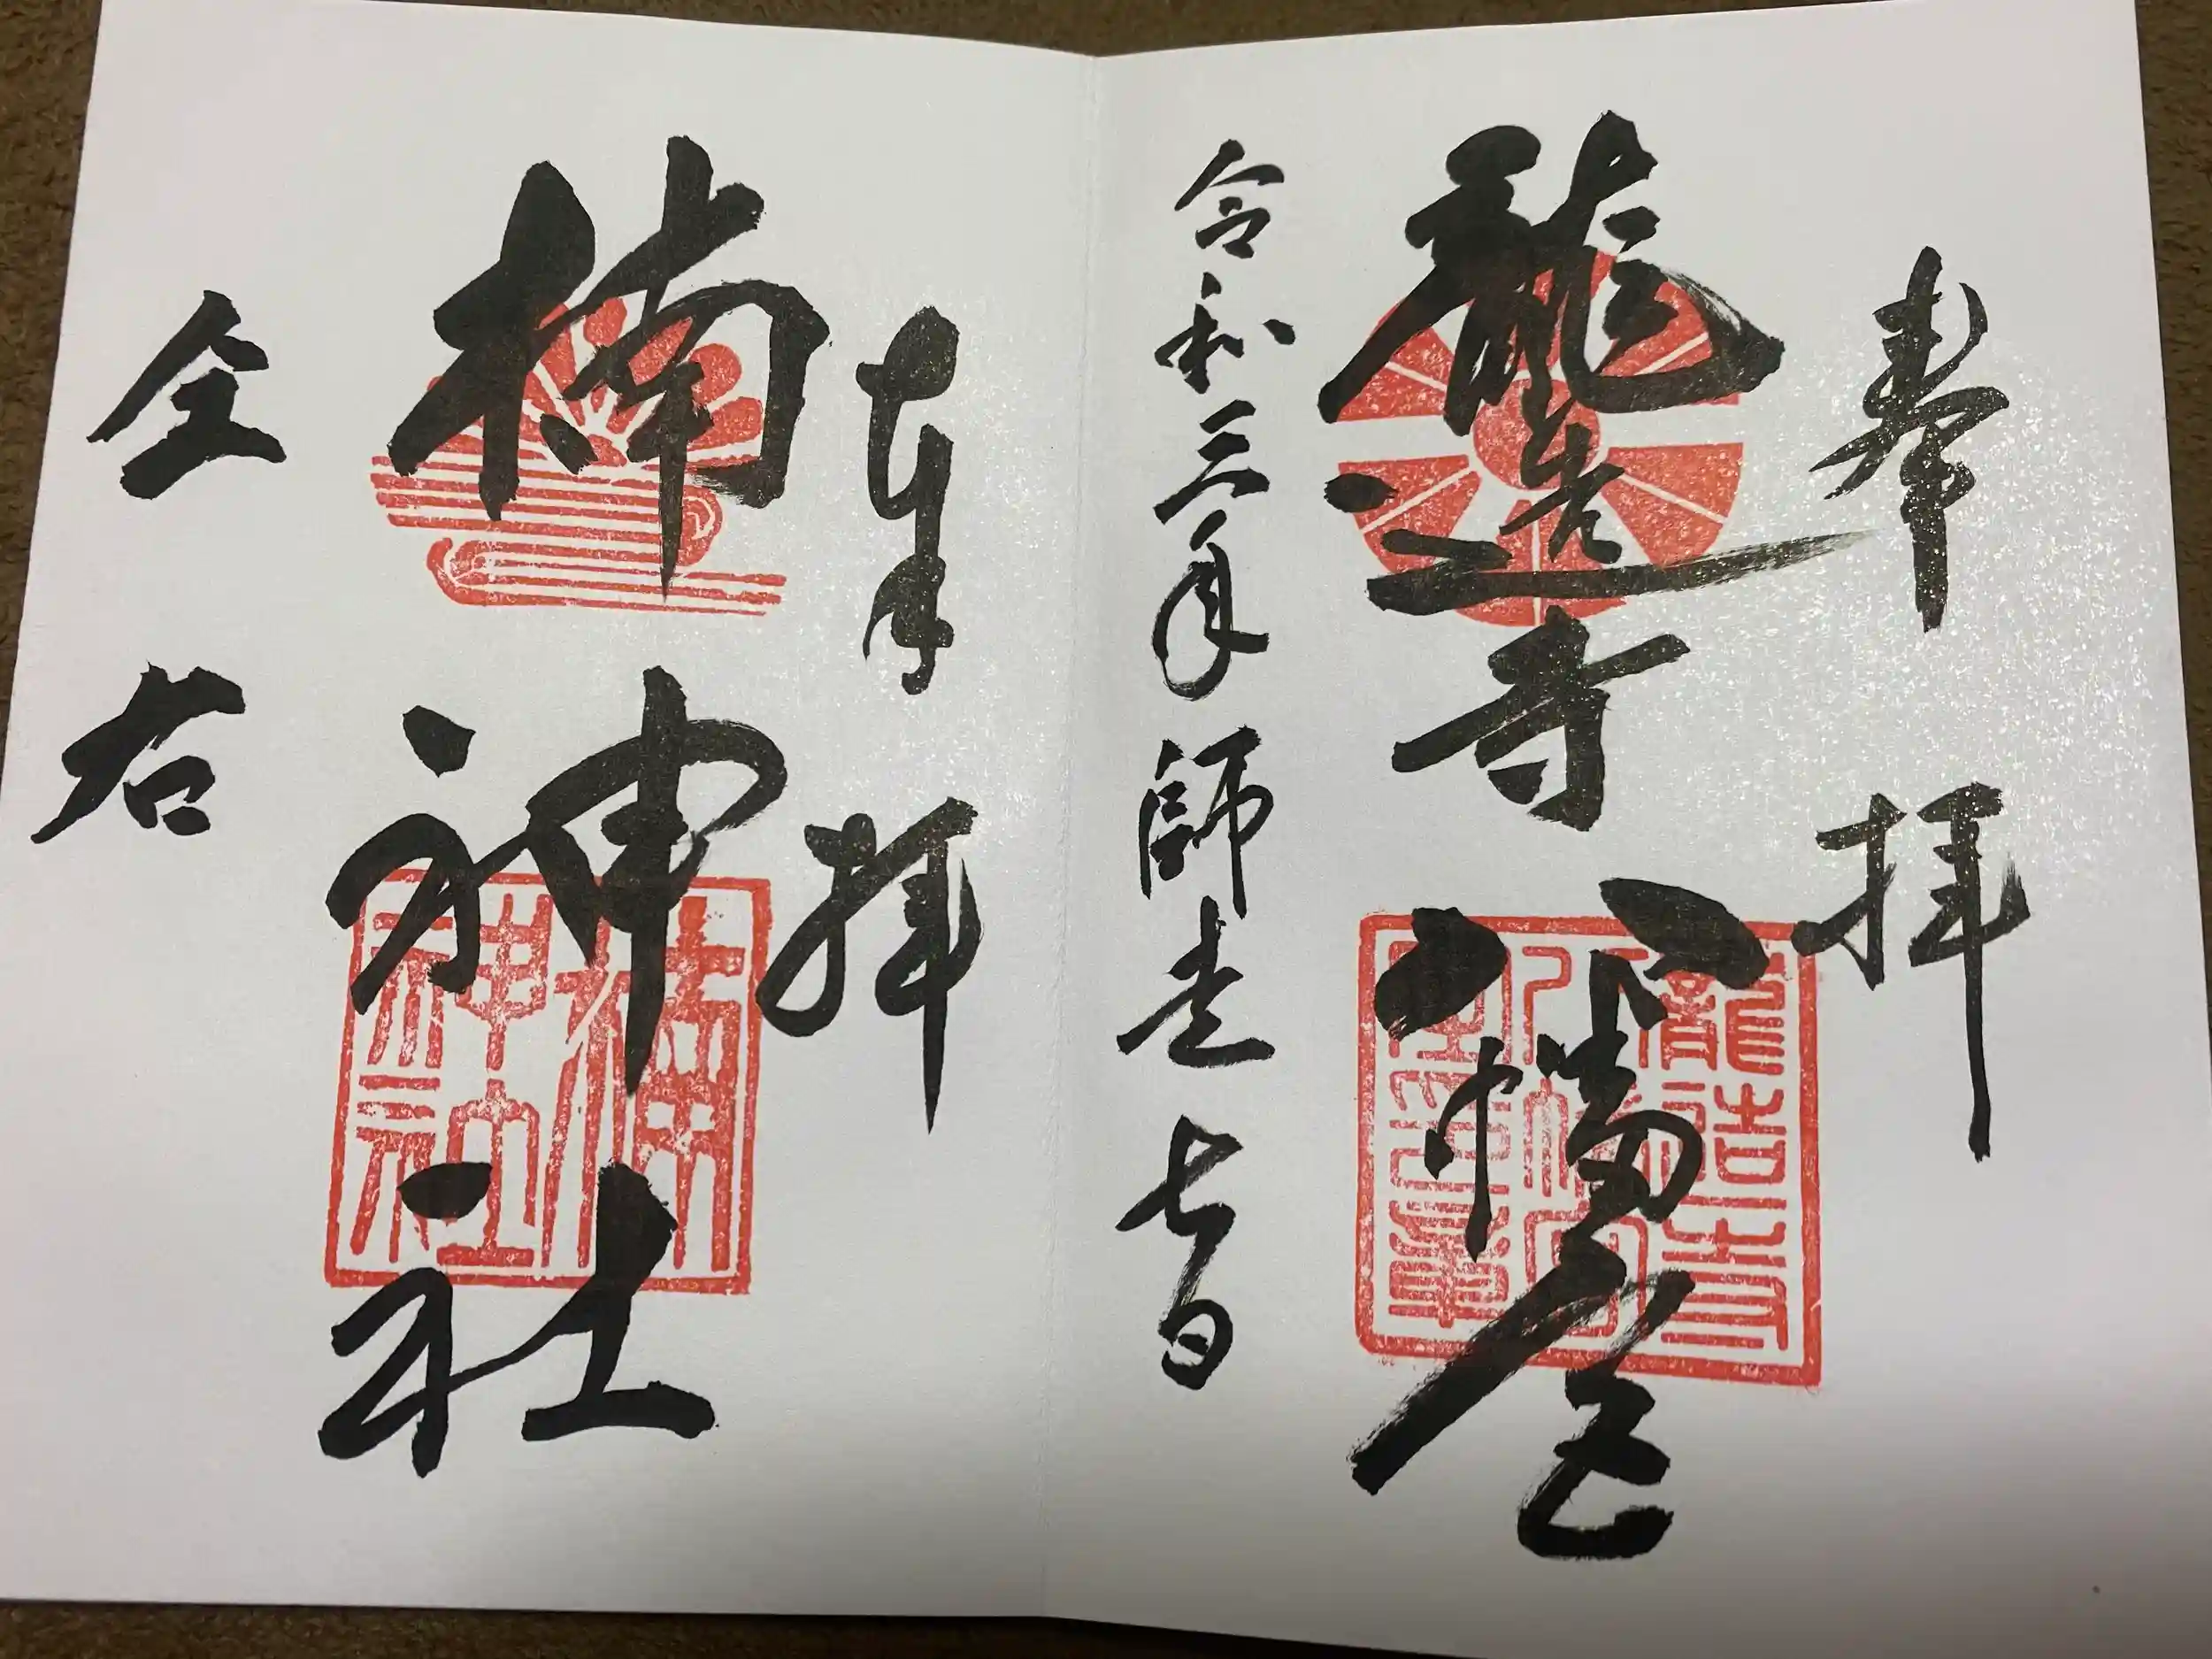 奉拝
龍造寺八幡宮
龍造寺
八幡宮
令和三年師走七日
奉拝
楠神社
楠
神社
仝右